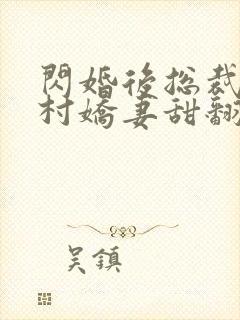 閃婚後總裁
村嬌妻甜翻
吴鎮